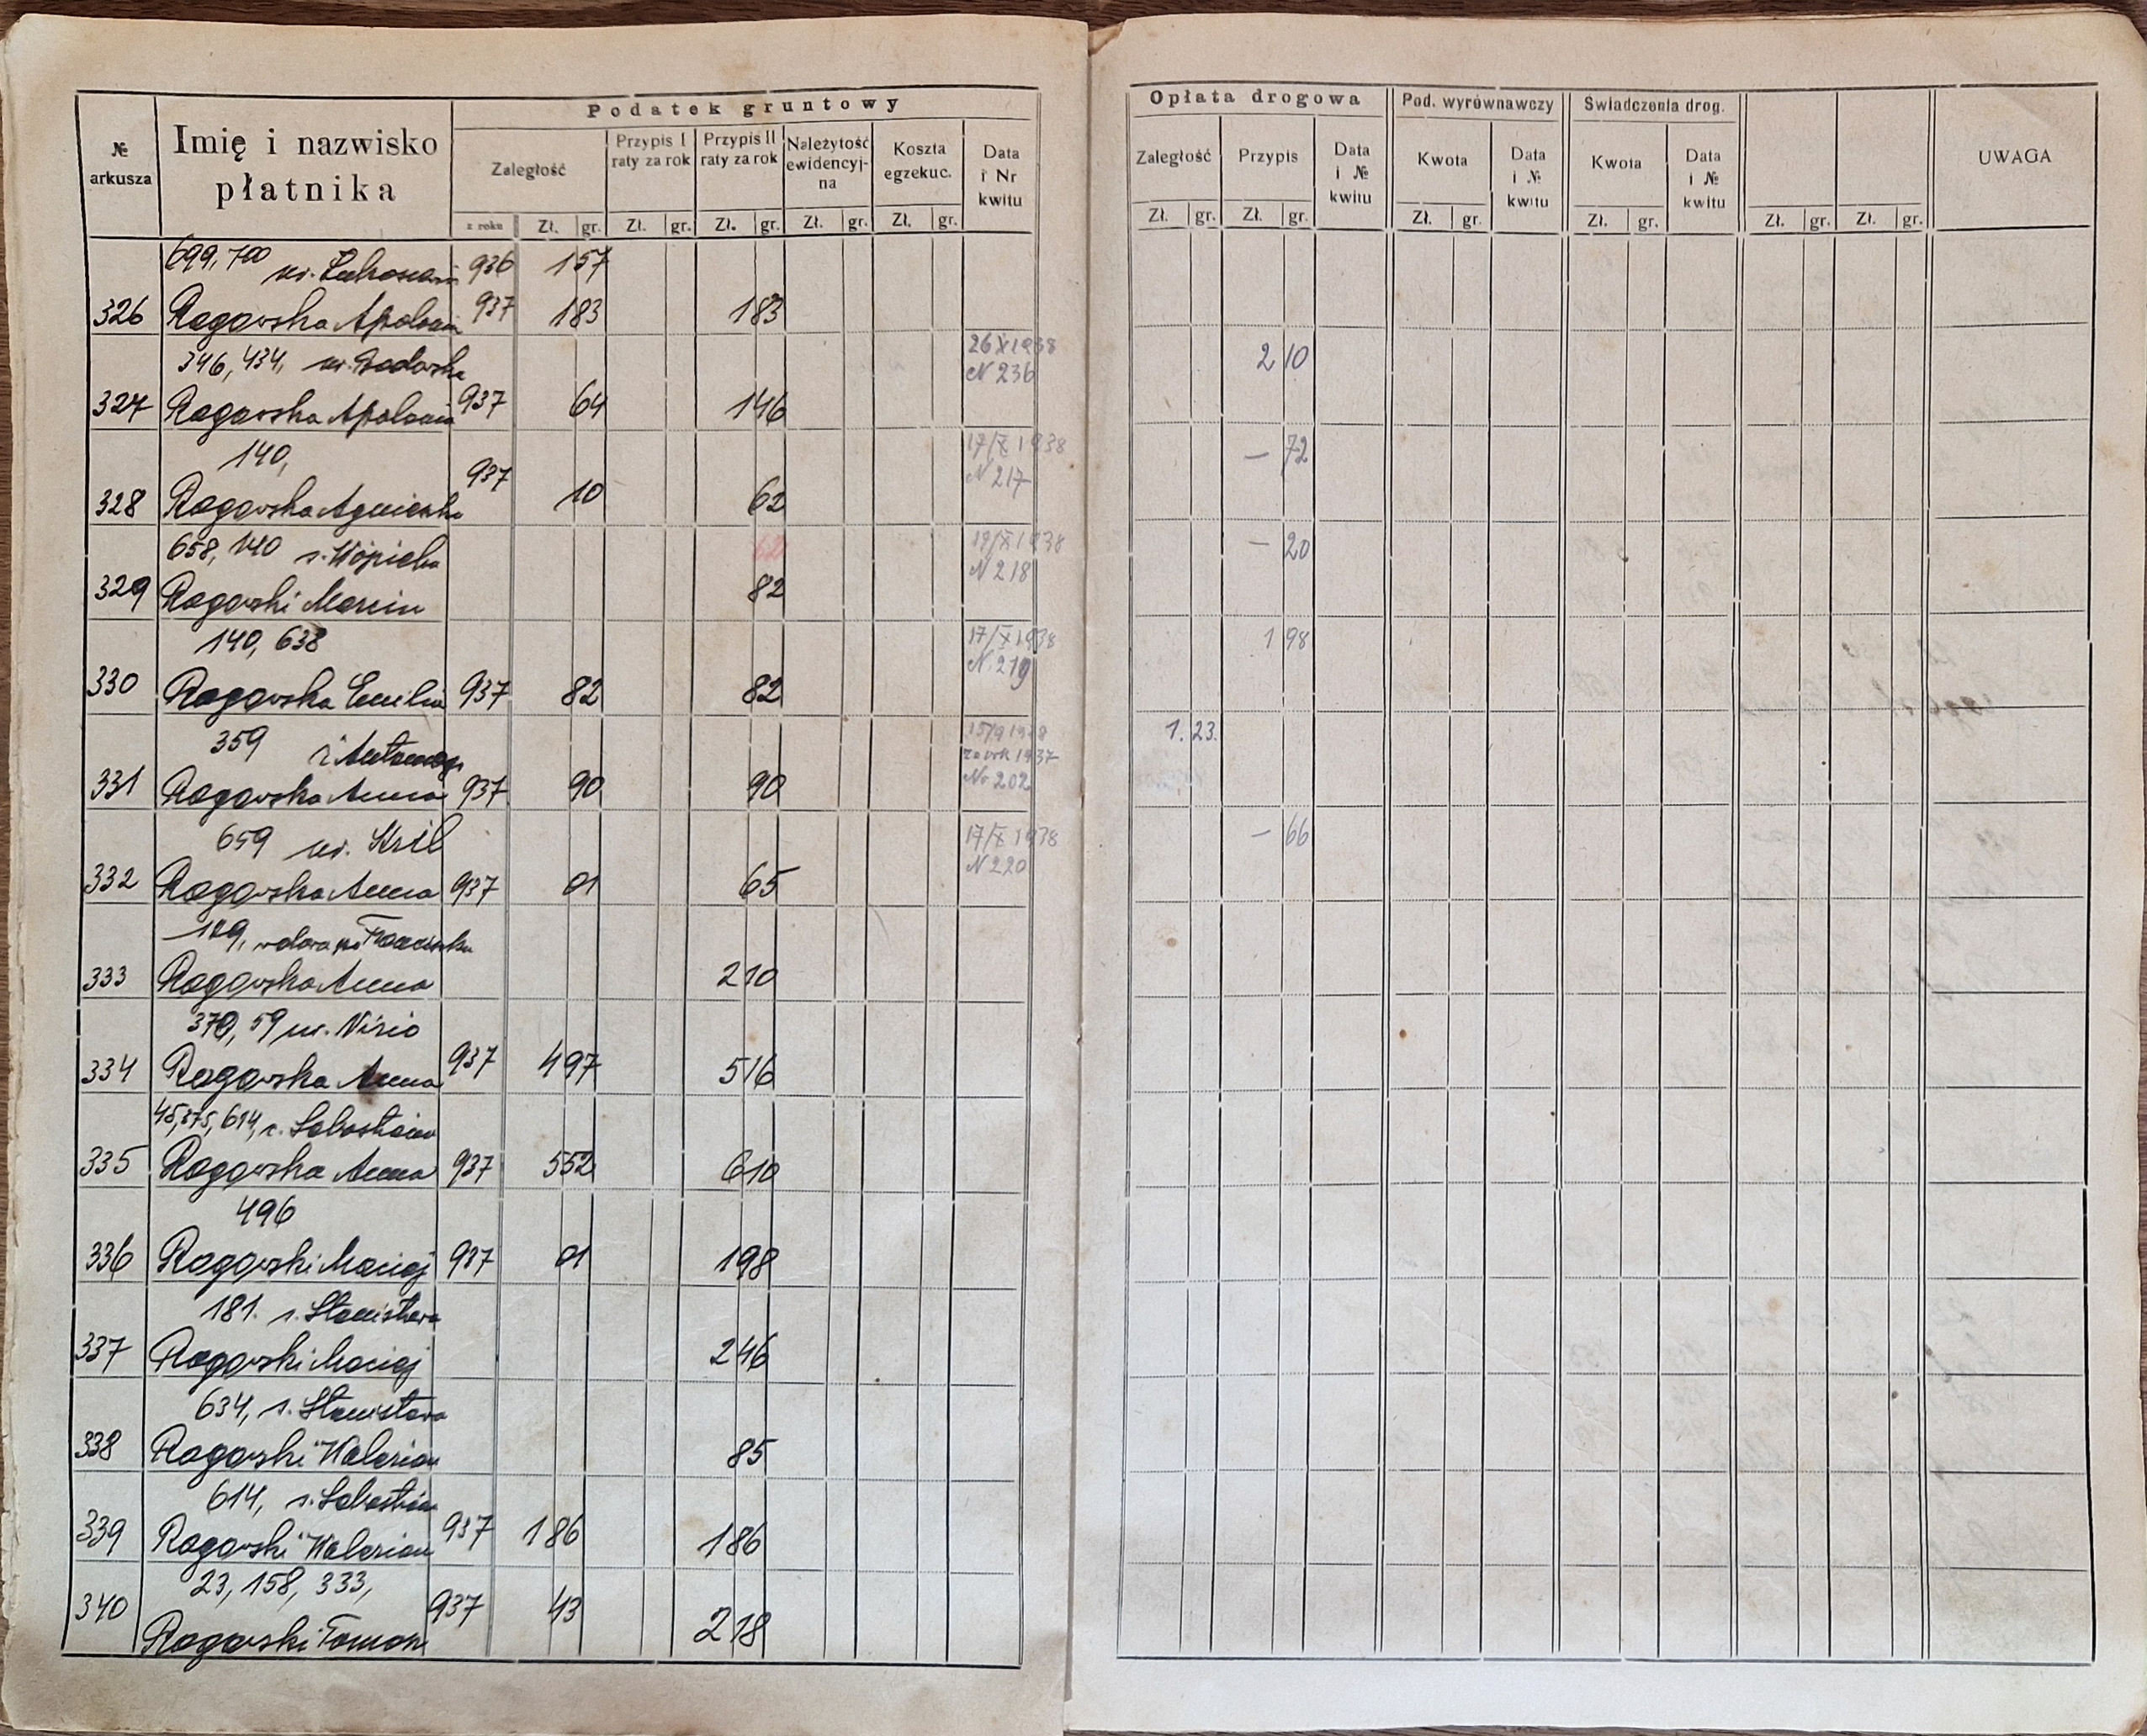 Podatek gruntowy
Opłata drogowa
Pod. wyrównawczy
Świadczenia drog.
№ arkusza
Imię i nazwisko płatnika
Zaległość
Przypis I raty za rok
Przypis II raty za rok
Należytość ewidencyjna
Koszta egzekuc.
Data i Nr kwitu
Zaległość
Przypis
Data i № kwitu
Kwota
Data i № kwitu
Kwota
Data i № kwitu
UWAGA
z roku Zł. gr. Zł. gr. Zł. gr. Zł. gr. Zł. gr.
Zł. gr. Zł. gr. Zł. gr. Zł. gr. Zł. gr. Zł. gr.
699, 700 936 157
326 Rogowska Apolonia 937 183 183
346, 434, 26 X 1938 2 10
N 236
327 Rogowska Apolonia 937 64 146
140, 17/X 1938 — 72
937 N 217
328 Rogowska Agnieszka 10 62
658, 140 s. Wojciecha 62 19/X 1938 — 20
N 218
329 Rogowski Marcin 82
140, 638 17/X 1938 1 98
N. 219
330 Rogowska Emilia 937 82 82
359 c. Antoniego 15/9 1938 1. 23.
za rok 1937
Nr 202
331 Rogowska Anna 937 90 90
659 ur. Król 17/X 1938 — 66
N 220
332 Rogowska Anna 937 01 65
wdowa po Franciszku
333 Rogowska Anna 210
370, 59 ur.
334 Rogowska Anna 937 497 516
45, 375, 614, c. Sebastiana
335 Rogowska Anna 937 552 610
496
336 Rogowski Maciej 937 01 198
181. s. Stanisława
337 Rogowski Maciej 246
634, s. Stanisława
338 Rogowski Walerian 85
614, s. Sebastiana
339 Rogowski Walerian 937 186 186
23, 158, 333,
340 937 43
Rogowski Tomasz 218